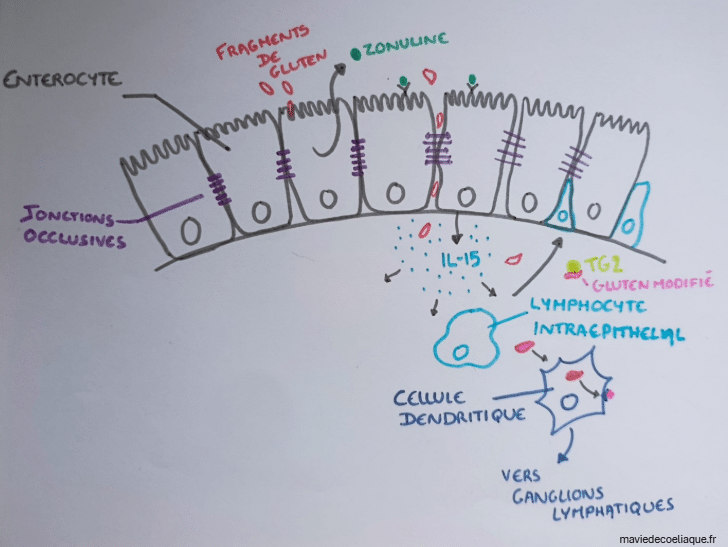 FRAGMENTS
DE
GLUTEN
ZONULINE
ENTEROCYTE
JONCTIONS
OCCLUSIVES
IL-15
TG2
GLUTEN MODIFIÉ
LYMPHOCYTE
INTRAEPITHELIAL
CELLULE
DENDRITIQUE
VERS
GANGLIONS
LYMPHATIQUES
maviedecoeliaque.fr